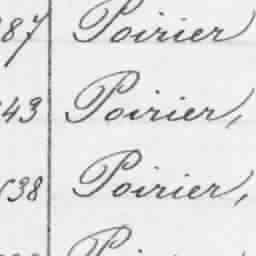 87 Poirier
43 Poirier,
538 Poirier,